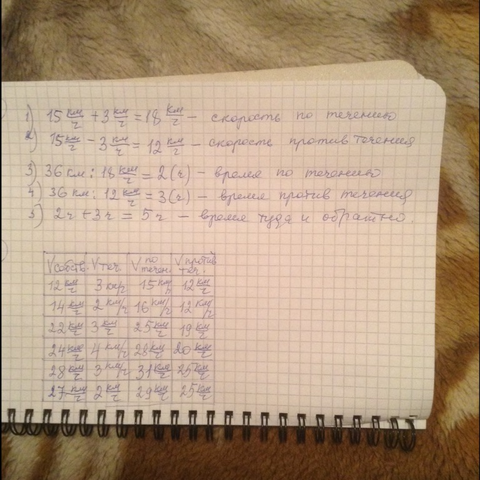 1) 15 км/ч + 3 км/ч = 18 км/ч – скорость по течению
2) 15 км/ч – 3 км/ч = 12 км/ч – скорость против течения
3) 36 км : 18 км/ч = 2 (ч) – время по течению
4) 36 км : 12 км/ч = 3 (ч) – время против течения
5) 2ч + 3ч = 5ч – время туда и обратно
Vсобств. Vтеч. Vпо течен. Vпротив теч.
12 км/ч 3 км/ч 15 км/ч 12 км/ч
14 км/ч 2 км/ч 16 км/ч 12 км/ч
22 км/ч 3 км/ч 25 км/ч 19 км/ч
24 км/ч 4 км/ч 28 км/ч 20 км/ч
28 км/ч 3 км/ч 31 км/ч 25 км/ч
27 км/ч 2 км/ч 29 км/ч 25 км/ч